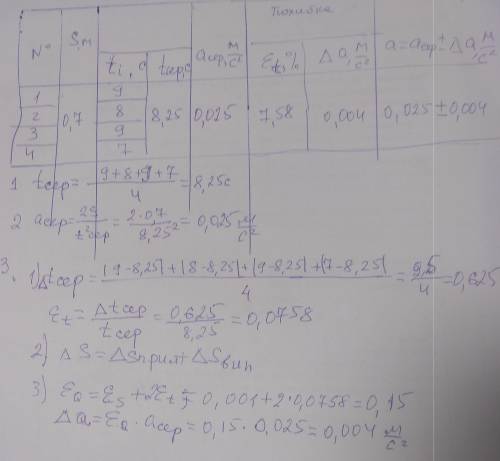 Похибка
N° S,м tᵢ, с tсер,с aсер, м/с² εt,% Δa, м/с² a=aсер±Δa, м/с²
1 9
2 0,7 8 8,25 0,025 7,58 0,004 0,025±0,004
3 9
4 7
1 tсер= (9+8+9+7)/4 =8,25c
2 aсер= 2S/t²сер = 2·0,7/8,25² =0,025 м/с²
3. 1) Δtсер= (|9-8,25|+|8-8,25|+|9-8,25|+|7-8,25|)/4 = 2,5/4 =0,625
εt= Δtсер/tсер = 0,625/8,25 =0,0758
2) ΔS=ΔSприл+ΔSвип
3) εa=εs+2εt= 0,001+2·0,0758=0,15
Δa=εa·aсер=0,15·0,025=0,004 м/с²